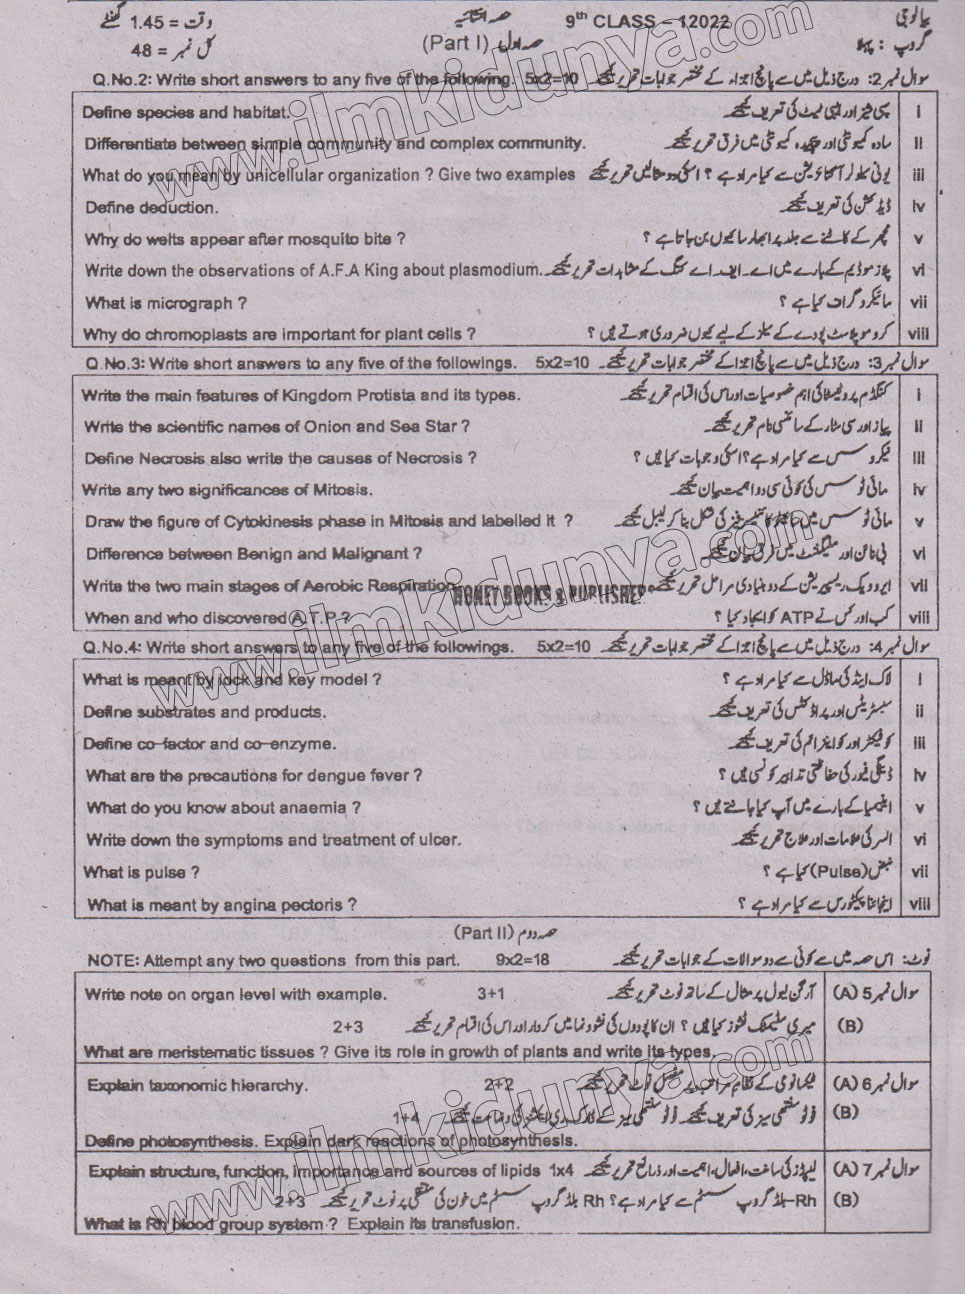 بیالوجی 9th CLASS – 12022 حصہ انشائیہ وقت = 1.45 گھنٹے
گروپ : پہلا حصہ اول (Part I) کل نمبر = 48
Q.No.2: Write short answers to any five of the following. 5x2=10 سوال نمبر 2: درج ذیل میں سے پانچ اجزاء کے مختصر جوابات تحریر کیجئے۔
Define species and habitat. سپی شیز اور ہیبی ٹیٹ کی تعریف کیجئے۔ i
Differentiate between simple community and complex community. سادہ کمیونٹی اور پیچیدہ کمیونٹی میں فرق تحریر کیجئے۔ ii
What do you mean by unicellular organization ? Give two examples یونی سیلولر آرگنائزیشن سے کیا مراد ہے ؟ اسکی دو مثالیں تحریر کیجئے۔ iii
Define deduction. ڈیڈکشن کی تعریف کیجئے۔ iv
Why do welts appear after mosquito bite ? مچھر کے کاٹنے سے جلد پر ابھار سا کیوں بن جاتا ہے ؟ v
Write down the observations of A.F.A King about plasmodium. پلازموڈیم کے بارے میں اے۔ایف۔اے کنگ کے مشاہدات تحریر کیجئے۔ vi
What is micrograph ? مائیکروگراف کیا ہے ؟ vii
Why do chromoplasts are important for plant cells ? کروموپلاسٹ پودے کے سیلز کے لیے کیوں ضروری ہوتے ہیں ؟ viii
Q.No.3: Write short answers to any five of the followings. 5x2=10 سوال نمبر 3: درج ذیل میں سے پانچ اجزا کے مختصر جوابات تحریر کیجئے۔
Write the main features of Kingdom Protista and its types. کنگڈم پروٹسٹا کی اہم خصوصیات اور اس کی اقسام تحریر کیجئے۔ i
Write the scientific names of Onion and Sea Star ? پیاز اور سی سٹار کے سائنسی نام تحریر کیجئے۔ ii
Define Necrosis also write the causes of Necrosis ? نیکروسس سے کیا مراد ہے؟ اسکی وجوہات کیا ہیں ؟ iii
Write any two significances of Mitosis. مائی ٹوسس کی کوئی سی دو اہمیت بیان کیجئے۔ iv
Draw the figure of Cytokinesis phase in Mitosis and labelled it ? مائی ٹوسس میں سائیٹوکائنیسز فیز کی شکل بنا کر لیبل کیجئے۔ v
Difference between Benign and Malignant ? بی نائن اور میلگننٹ میں فرق بیان کیجئے۔ vi
Write the two main stages of Aerobic Respiration ایروبک ریسپریشن کے دو بنیادی مراحل تحریر کیجئے۔ vii
HONEY BOOKS & PUBLISHER
When and who discovered A.T.P ? کب اور کس نے ATP کو ایجاد کیا ؟ viii
Q.No.4: Write short answers to any five of the followings. 5x2=10 سوال نمبر 4: درج ذیل میں سے پانچ اجزا کے مختصر جوابات تحریر کیجئے۔
What is meant by lock and key model ? لاک اینڈ کی ماڈل سے کیا مراد ہے ؟ i
Define substrates and products. سبسٹریٹس اور پراڈکٹس کی تعریف کیجئے۔ ii
Define co-factor and co-enzyme. کوفیکٹر اور کو اینزائم کی تعریف کیجئے۔ iii
What are the precautions for dengue fever ? ڈینگی فیور کی حفاظتی تدابیر کونسی ہیں ؟ iv
What do you know about anaemia ? اینیمیا کے بارے میں آپ کیا جانتے ہیں ؟ v
Write down the symptoms and treatment of ulcer. السر کی علامات اور علاج تحریر کیجئے۔ vi
What is pulse ? نبض (Pulse) کیا ہے ؟ vii
What is meant by angina pectoris ? اینجائنا پیکٹورس سے کیا مراد ہے ؟ viii
حصہ دوم (Part II)
NOTE: Attempt any two questions from this part. 9x2=18 نوٹ: اس حصہ میں سے کوئی سے دو سوالات کے جوابات تحریر کیجئے۔
Write note on organ level with example. 3+1 آرگن لیول پر مثال کے ساتھ نوٹ تحریر کیجئے۔ (A) سوال نمبر 5
2+3 میری سٹیمیٹک ٹشوز کیا ہیں ؟ ان کا پودوں کی نشوونما میں کردار اور اس کی اقسام تحریر کیجئے۔ (B)
What are meristematic tissues ? Give its role in growth of plants and write its types.
Explain taxonomic hierarchy. 2+2 ٹیکسانومی کے نظام مراتب پر مفصل نوٹ تحریر کیجئے۔ (A) سوال نمبر 6
1+4 فوٹوسنتھی سیز کی تعریف کیجئے۔ فوٹوسنتھی سیز کے ڈارک ری ایکشنز کی وضاحت کیجئے۔ (B)
Define photosynthesis. Explain dark reactions of photosynthesis.
Explain structure, function, importance and sources of lipids 1x4 لپڈز کی ساخت، افعال، اہمیت اور ذرائع تحریر کیجئے۔ (A) سوال نمبر 7
2+3 Rh-بلڈ گروپ سسٹم سے کیا مراد ہے؟ Rh بلڈ گروپ سسٹم میں خون کی منتقلی پر نوٹ تحریر کیجئے۔ (B)
What is Rh blood group system ? Explain its transfusion.
www.ilmkidunya.com
www.ilmkidunya.com
www.ilmkidunya.com